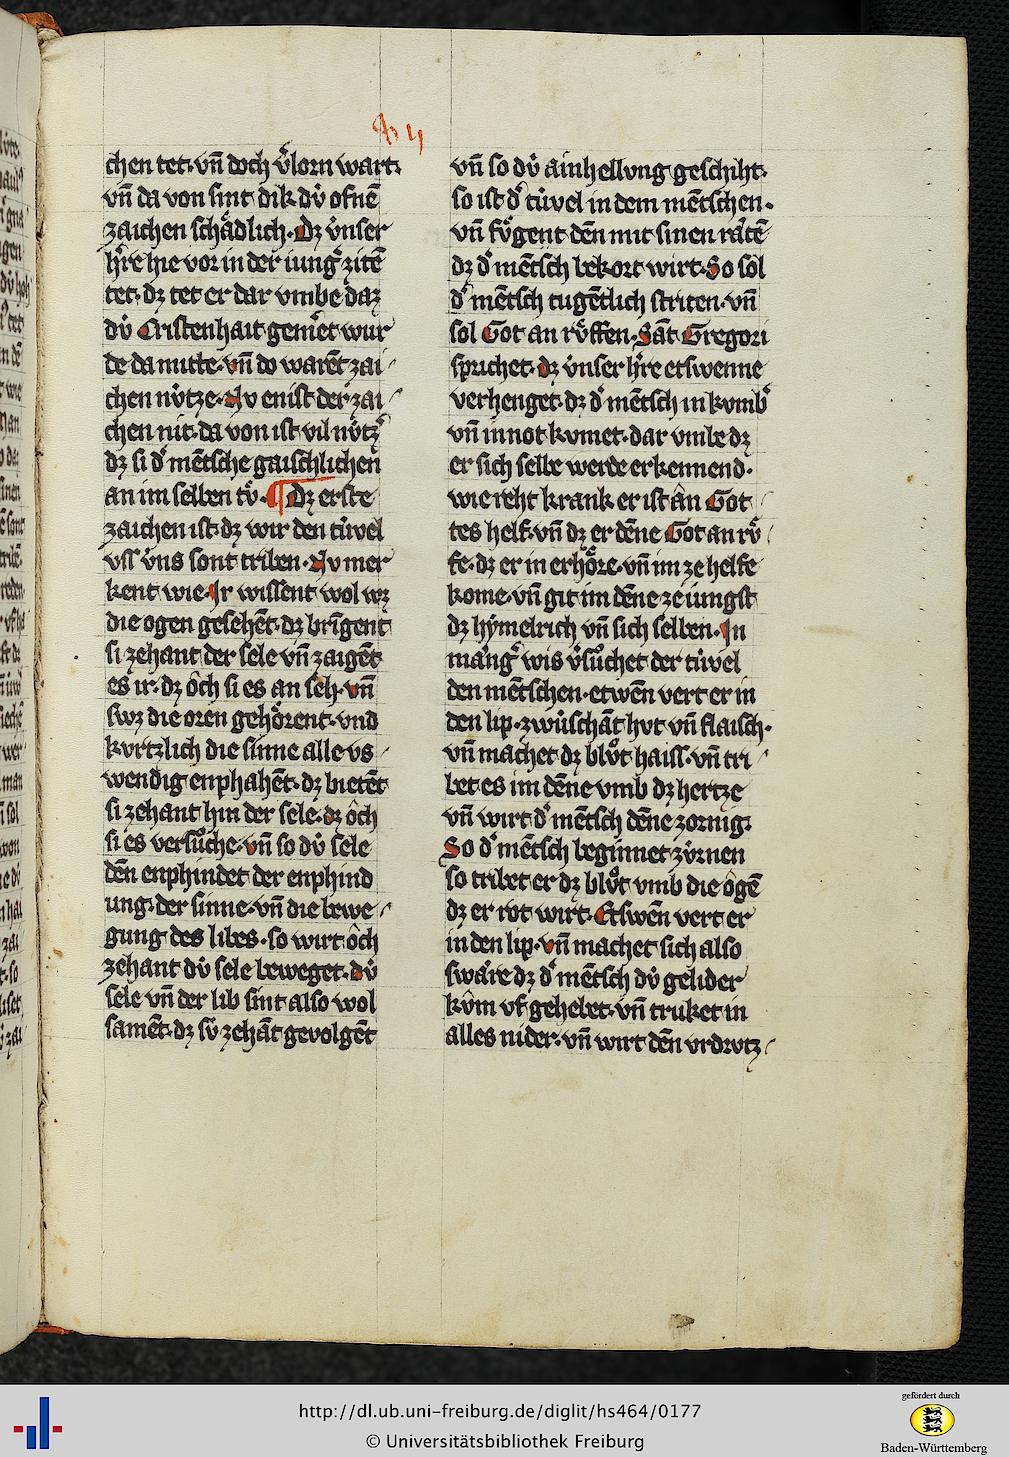 chen tet· vn̄ doch v͛lorn wart·
vn̄ da von sint dik dv̍ ofnē
zaichen schädlich· Dꝫ v̍nser
h͛re hie vor in der iung͛ zitē
tet· dꝫ tet er dar vmbe daz
dv̍ Cristenhait gemet wur
de da mitte· vn̄ do warēt zai
chen nv̍tze· Nv en ist der zai
chen nit· da von ist vil nv̍tz͛
dꝫ si d͛ mētsche gaischlichen
an im selben tv̊· ¶ Dꝫ erste
zaichen ist· dꝫ wir den tv̍vel
vss v̍ns sont triben· Nv mer
kent wie· Ir wissent wol wꝫ
die ogen gesehēt· dꝫ brīgent
si zehant der sele vn̄ zaigēt
es ir· dꝫ ôch si es an seh· vn̄
swꝫ die oren gehörent· vnd
kvrtzlich die sinne alle vs
wendig enphahēt· dꝫ bietēt
si zehant hin der sele· dꝫ ôch
si es versůche· vn̄ so dv̍ sele
dēn enphindet der enphind
ung· der sinne· vn̄ die bewe
gung des libes· so wirt ôch
zehant dv̍ sele beweget· dv̍
sele vn̄ der lib sint also wol
samēt· dꝫ sv̍ zehāt gevolgēt
vn̄ so dv̍ ainhellvng geschiht·
so ist d͛ tv̍vel in dem mētschen·
vn̄ fv̊gent dēn mit sinen rätē
dꝫ d͛ mētsch bekort wirt· So sol
d͛ mētsch tugētlich striten· vn̄
sol Got an rv̊ffen· Sāt Gregori
sprichet· dꝫ v̍nser h͛re etswenne
verhenget· dꝫ d͛ mētsch in kvmb͛
vn̄ in not kvmet· dar vmbe dꝫ
er sich selbe werde erkennend·
wie reht krank er ist ân Got
tes helf· vn̄ dꝫ er dēne Got an rv̊
fe· dꝫ er in erhöre· vn̄ im ze helfe
kome· vn̄ git im dēne ze iungst
dꝫ hẏmelrich vn̄ sich selben· In
mäng͛ wis v͛sůchet der tv̍vel
den mētschen· etwēn vert er in
den lip· zwv̍schāt hvt vn̄ flaisch·
vn̄ machet dꝫ blv̊t haiss· vn̄ tri
bet es im dēne vmb dꝫ hertze
vn̄ wirt d͛ mētsch dēne zornig·
So d͛ mētsch beginnet zv̍rnen
so tribet er dꝫ blv̊t vmb die ôgē
dꝫ er rot wirt· Etswēn vert er
in den lip· vn̄ machet sich also
swäre dꝫ d͛ mētsch dv̍ gelider
kûm vf gehebet· vn̄ truket in
alles nider· vn̄ wirt dēn vrdrvtz
http://dl.ub.uni-freiburg.de/diglit/hs464/0177
© Universitätsbibliothek Freiburg
gefördert durch
Baden-Württemberg